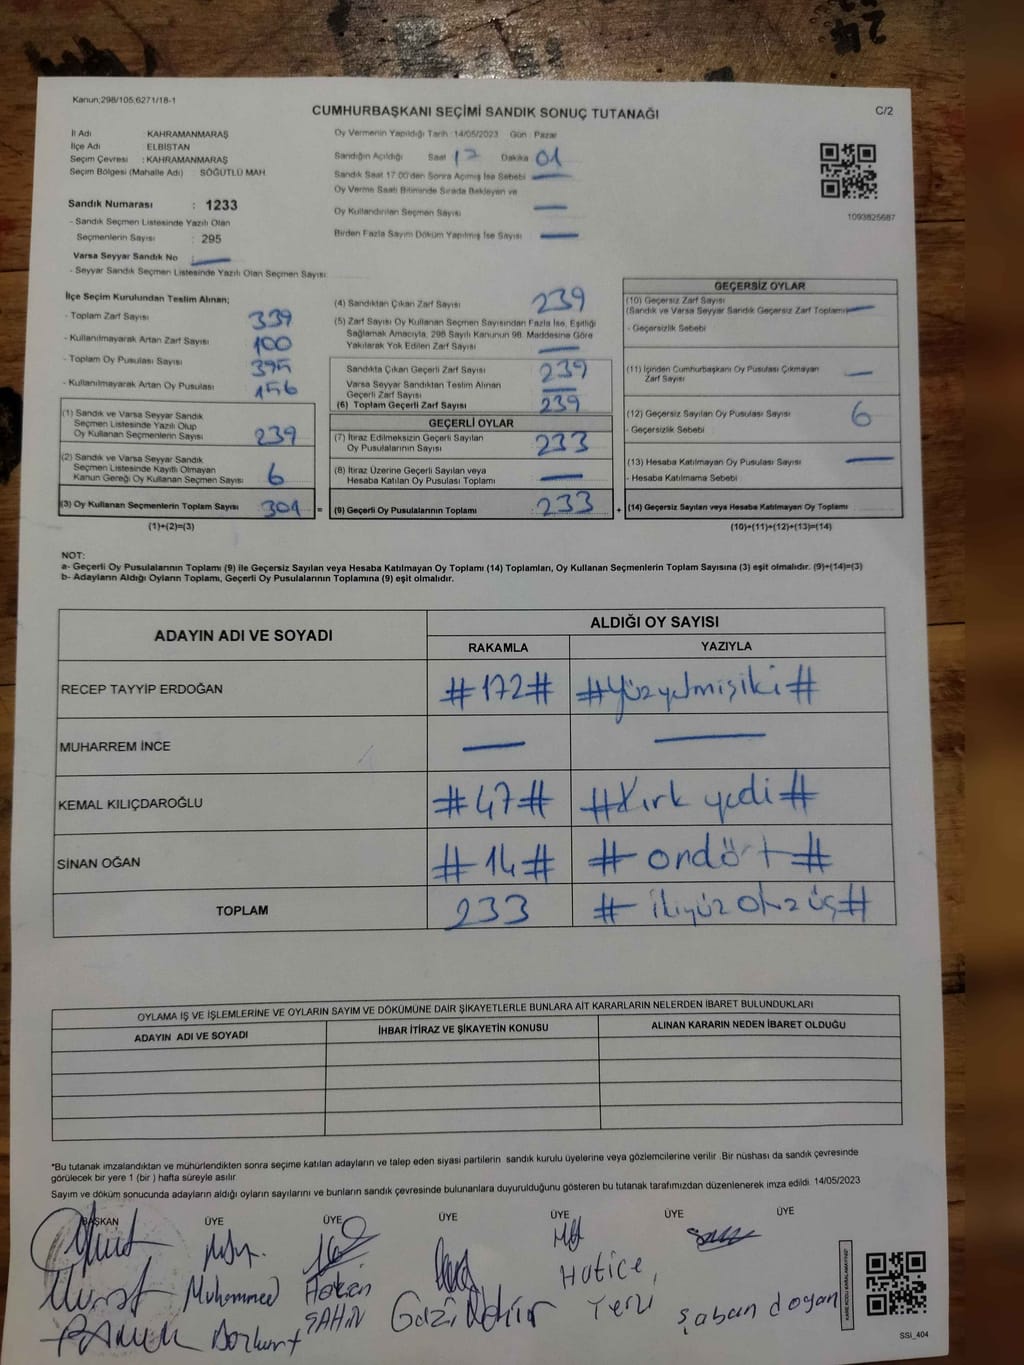 Kanun;298/105;6271/18-1
CUMHURBAŞKANI SEÇİMİ SANDIK SONUÇ TUTANAĞI
C/2
İl Adı KAHRAMANMARAŞ
İlçe Adı ELBİSTAN
Seçim Çevresi : KAHRAMANMARAŞ
Seçim Bölgesi (Mahalle Adı) SÖĞÜTLÜ MAH
Sandık Numarası : 1233
- Sandık Seçmen Listesinde Yazılı Olan
Seçmenlerin Sayısı : 295
Varsa Seyyar Sandık No
- Seyyar Sandık Seçmen Listesinde Yazılı Olan Seçmen Sayısı:
Oy Vermenin Yapıldığı Tarih :14/05/2023 Gün : Pazar
Sandığın Açıldığı Saat 17 Dakika 01
Sandık Saat 17.00'den Sonra Açılmış İse Sebebi
Oy Verme Saati Bitiminde Sırada Bekleyen ve
Oy Kullandırılan Seçmen Sayısı
Birden Fazla Sayım Döküm Yapılmış İse Sayısı
1093825687
İlçe Seçim Kurulundan Teslim Alınan;
- Toplam Zarf Sayısı 339
- Kullanılmayarak Artan Zarf Sayısı 100
- Toplam Oy Pusulası Sayısı 395
- Kullanılmayarak Artan Oy Pusulası 156
(1) Sandık ve Varsa Seyyar Sandık
Seçmen Listesinde Yazılı Olup
Oy Kullanan Seçmenlerin Sayısı 239
(2) Sandık ve Varsa Seyyar Sandık
Seçmen Listesinde Kayıtlı Olmayan
Kanun Gereği Oy Kullanan Seçmen Sayısı 6
(3) Oy Kullanan Seçmenlerin Toplam Sayısı 301 =
(1)+(2)=(3)
(4) Sandıktan Çıkan Zarf Sayısı 239
(5) Zarf Sayısı Oy Kullanan Seçmen Sayısından Fazla İse, Eşitliği
Sağlamak Amacıyla, 298 Sayılı Kanunun 98. Maddesine Göre
Yakılarak Yok Edilen Zarf Sayısı
Sandıkta Çıkan Geçerli Zarf Sayısı 239
Varsa Seyyar Sandıktan Teslim Alınan
Geçerli Zarf Sayısı
(6) Toplam Geçerli Zarf Sayısı 239
GEÇERLİ OYLAR
(7) İtiraz Edilmeksizin Geçerli Sayılan
Oy Pusulalarının Sayısı 233
(8) İtiraz Üzerine Geçerli Sayılan veya
Hesaba Katılan Oy Pusulası Toplamı
(9) Geçerli Oy Pusulalarının Toplamı 233 +
GEÇERSİZ OYLAR
(10) Geçersiz Zarf Sayısı
(Sandık ve Varsa Seyyar Sandık Geçersiz Zarf Toplamı)
- Geçersizlik Sebebi
(11) İçinden Cumhurbaşkanı Oy Pusulası Çıkmayan
Zarf Sayısı
(12) Geçersiz Sayılan Oy Pusulası Sayısı 6
- Geçersizlik Sebebi
(13) Hesaba Katılmayan Oy Pusulası Sayısı
- Hesaba Katılmama Sebebi
(14) Geçersiz Sayılan veya Hesaba Katılmayan Oy Toplamı
(10)+(11)+(12)+(13)=(14)
NOT:
a- Geçerli Oy Pusulalarının Toplamı (9) ile Geçersiz Sayılan veya Hesaba Katılmayan Oy Toplamı (14) Toplamları, Oy Kullanan Seçmenlerin Toplam Sayısına (3) eşit olmalıdır. (9)+(14)=(3)
b- Adayların Aldığı Oyların Toplamı, Geçerli Oy Pusulalarının Toplamına (9) eşit olmalıdır.
ADAYIN ADI VE SOYADI
ALDIĞI OY SAYISI
RAKAMLA YAZIYLA
RECEP TAYYİP ERDOĞAN #172# #Yüzyetmişiki#
MUHARREM İNCE
KEMAL KILIÇDAROĞLU #47# #Kırk yedi#
SİNAN OĞAN #14# #ondört#
TOPLAM 233 #ikiyüzotuzüç#
OYLAMA İŞ VE İŞLEMLERİNE VE OYLARIN SAYIM VE DÖKÜMÜNE DAİR ŞİKAYETLERLE BUNLARA AİT KARARLARIN NELERDEN İBARET BULUNDUKLARI
ADAYIN ADI VE SOYADI İHBAR İTİRAZ VE ŞİKAYETİN KONUSU ALINAN KARARIN NEDEN İBARET OLDUĞU
*Bu tutanak imzalandıktan ve mühürlendikten sonra seçime katılan adayların ve talep eden siyasi partilerin sandık kurulu üyelerine veya gözlemcilerine verilir. Bir nüshası da sandık çevresinde
görülecek bir yere 1 (bir) hafta süreyle asılır.
Sayım ve döküm sonucunda adayların aldığı oyların sayılarını ve bunların sandık çevresinde bulunanlara duyurulduğunu gösteren bu tutanak tarafımızdan düzenlenerek imza edildi. 14/05/2023
BAŞKAN ÜYE ÜYE ÜYE ÜYE ÜYE ÜYE
Murat Muhammed Hakan Gazi Hatice
Bozkurt ŞAHİN Şaban doğan
SSİ_404